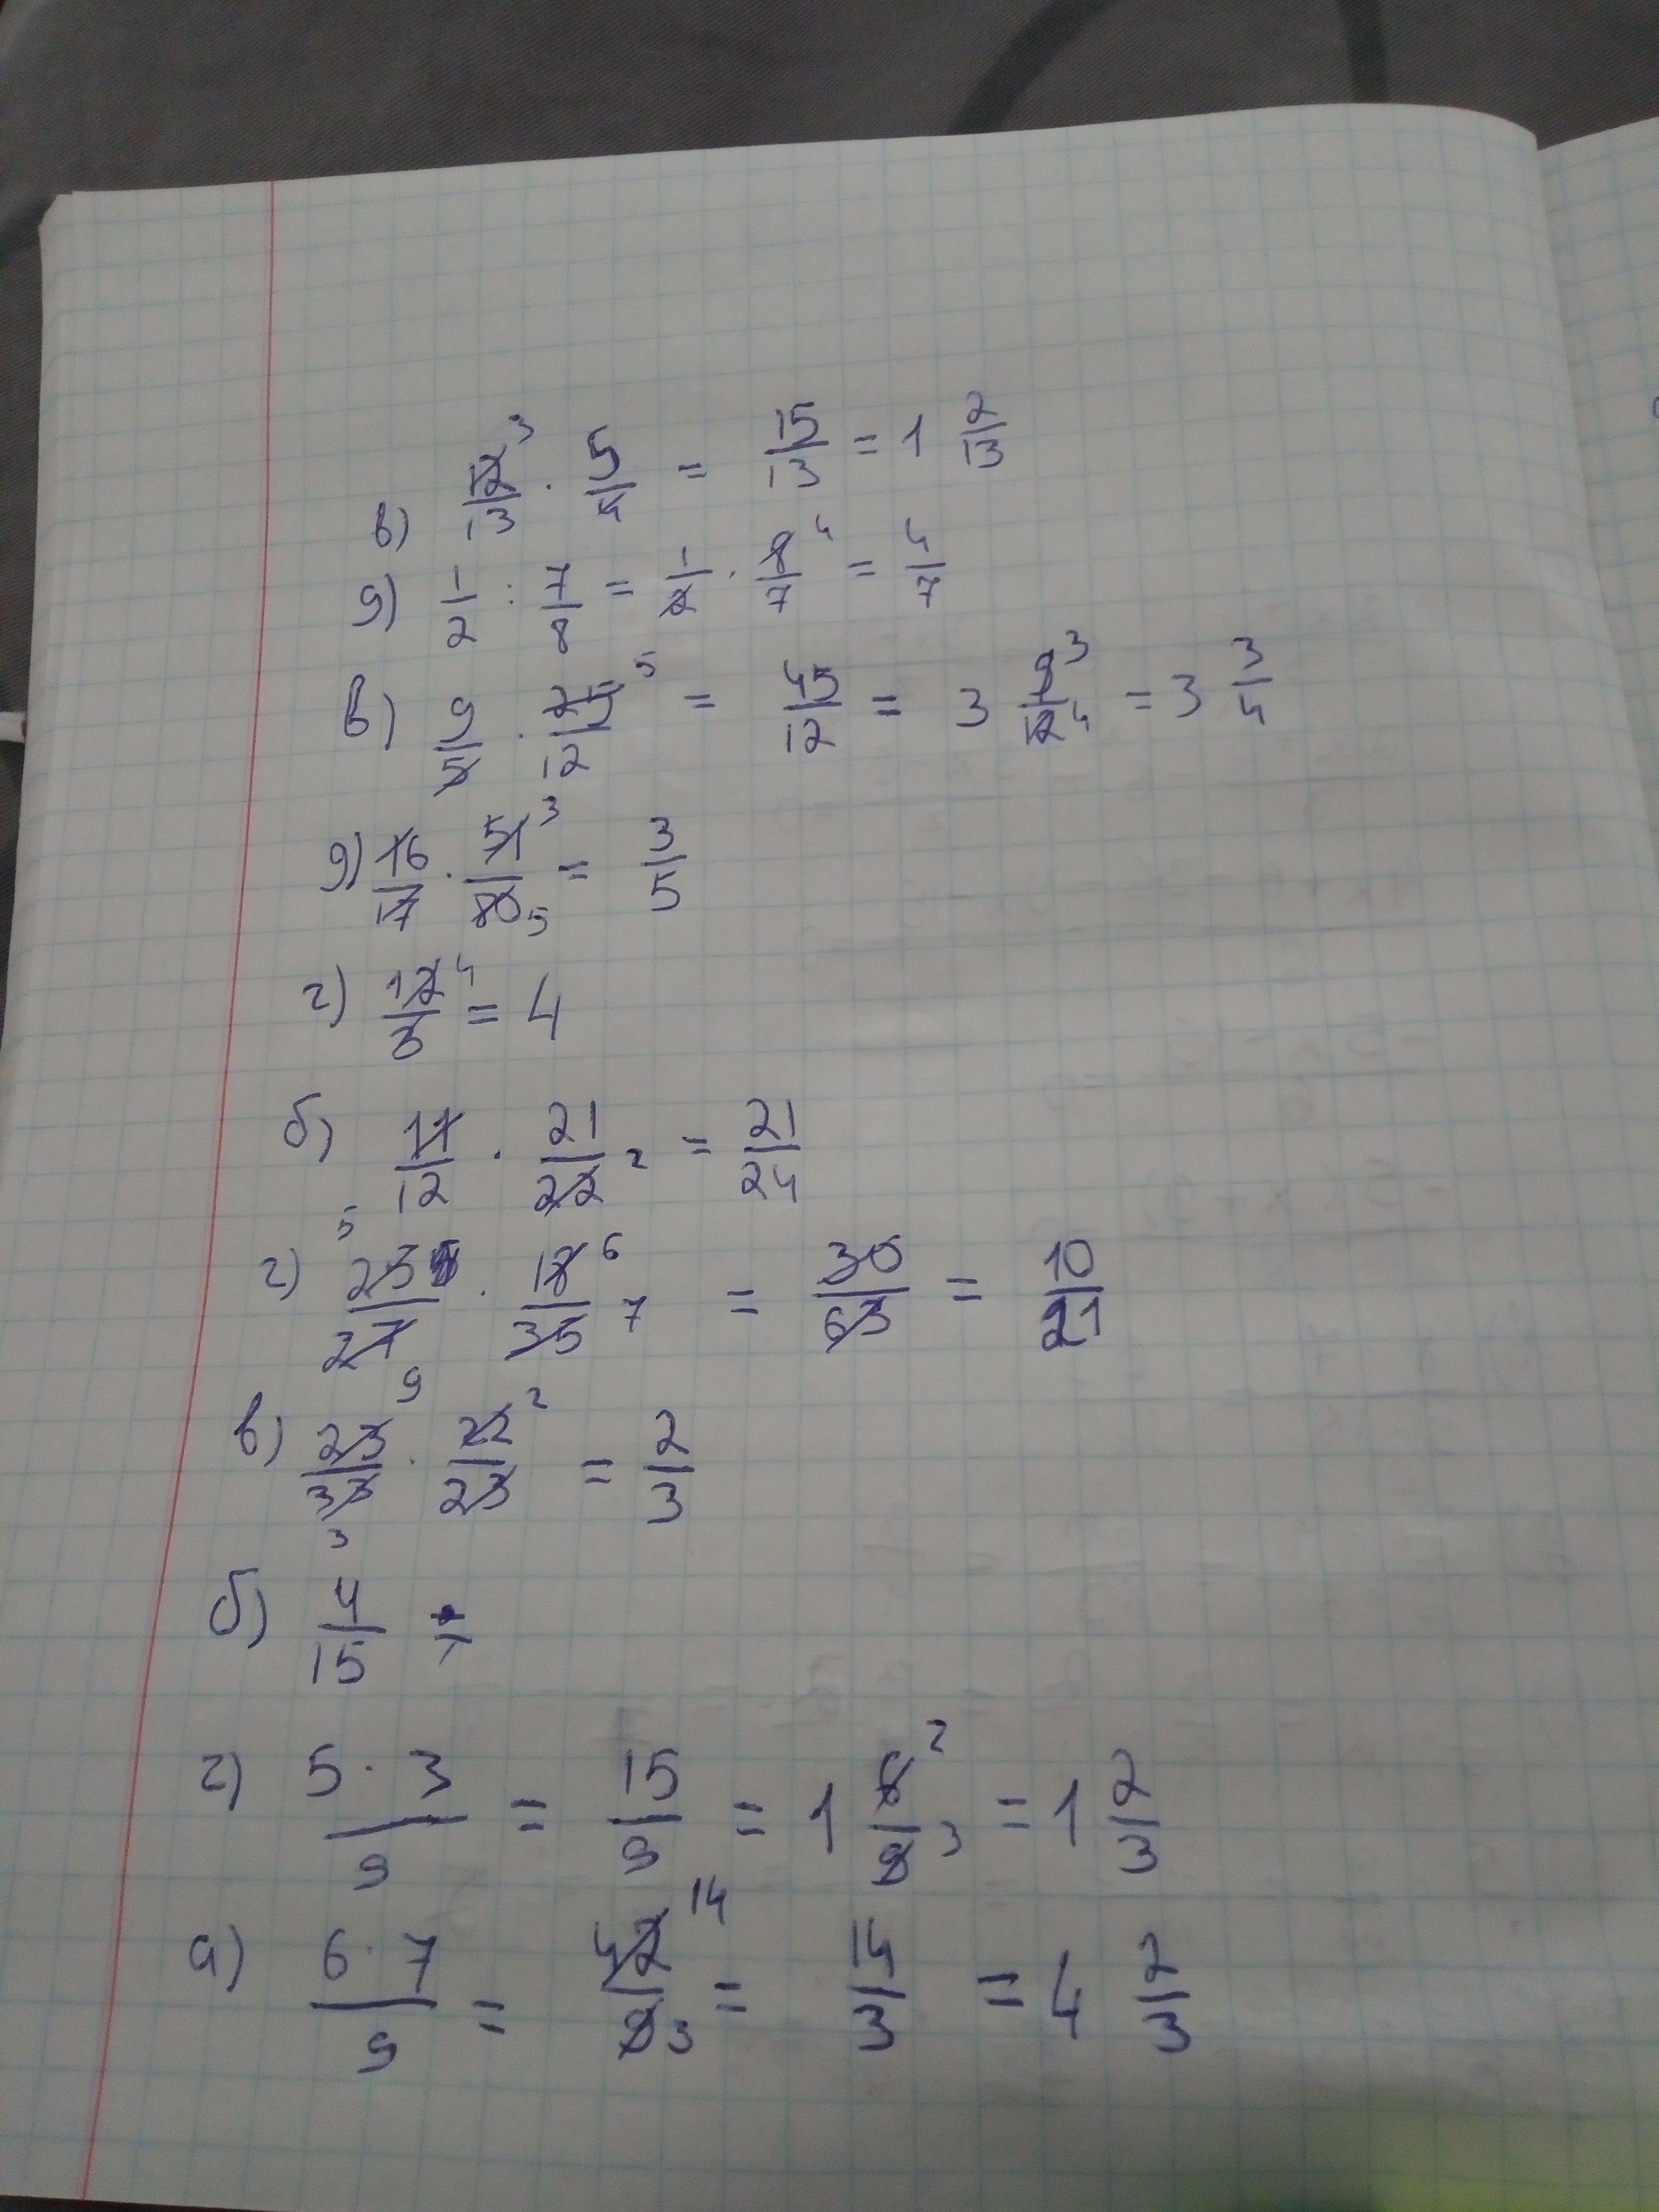 в) 12/13 ³ · 5/4 = 15/13 = 1 2/13
д) 1/2 : 7/8 = 1/2 · 8/7 ⁴ = 4/7
в) 9/5 · 25/12 ⁵ = 45/12 = 3 9/12 ³ ₄ = 3 3/4
д) 16/17 · 51/80 ³ ₅ = 3/5
г) 12/3 ⁴ = 4
б) 11/12 · 21/22 ₂ = 21/24
г) ⁵ 25/27 ₉ · 18/35 ⁶ ₇ = 30/63 = 10/21
в) 23/33 ₃ · 22/23 ² = 2/3
б) 4/15
г) 5 · 3/9 = 15/9 = 1 6/9 ² ₃ = 1 2/3
а) 6 · 7/9 = 42/9 ¹⁴ ₃ = 14/3 = 4 2/3